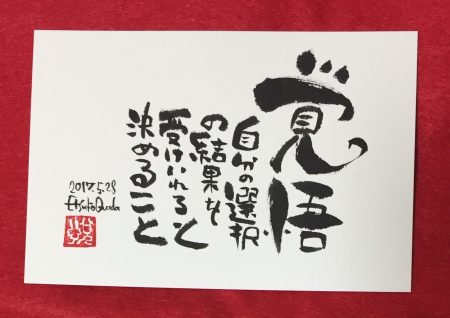 覚悟
自分の選択
の結果を
受けいれると
決めること
2017.5.28